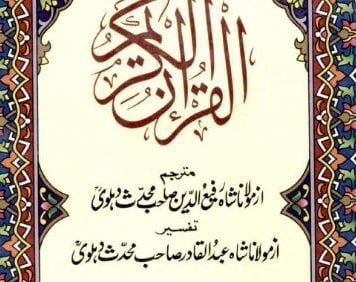 القرآن الکریم
مترجم
از مولانا شاہ رفیع الدین صاحب محدث دہلوی
تفسیر
از مولانا شاہ عبدالقادر صاحب محدث دہلوی